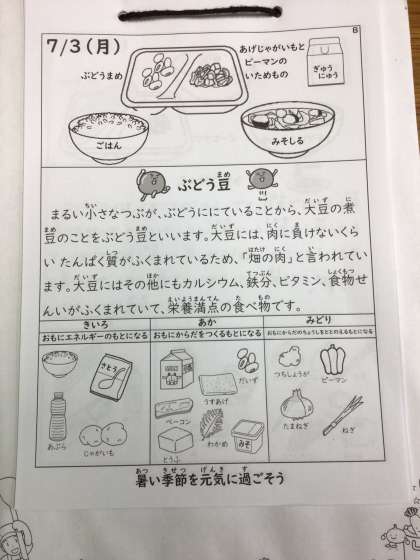 B
7/3(月)
ぶどうまめ
あげじゃがいもと
ピーマンの
いためもの
ぎゅう
にゅう
ごはん
みそしる
ぶどう豆
まめ
まるい小さなつぶが、ぶどうににていることから、大豆の煮
ちい
だいず
に
豆のことをぶどう豆といいます。大豆には、肉に負けないくら
まめ
まめ
だいず
にく
ま
い たんぱく質がふくまれているため、「畑の肉」と言われてい
しつ
はたけ
にく
い
ます。大豆にはその他にもカルシウム、鉄分、ビタミン、食物せ
だいず
ほか
てつぶん
しょくもつ
んいがふくまれていて、栄養満点の食べ物です。
えいようまんてん
た
もの
きいろ
あか
みどり
おもにエネルギーのもとになる
おもにからだをつくるもとになる
おもにからだのちょうしをととのえるもとになる
さとう
あぶら
じゃがいも
だいず
うすあげ
ベーコン
わかめ
とうふ
みそ
つちしょうが
ピーマン
たまねぎ
ねぎ
暑い季節を元気に過ごそう
あつ
きせつ
げんき
す